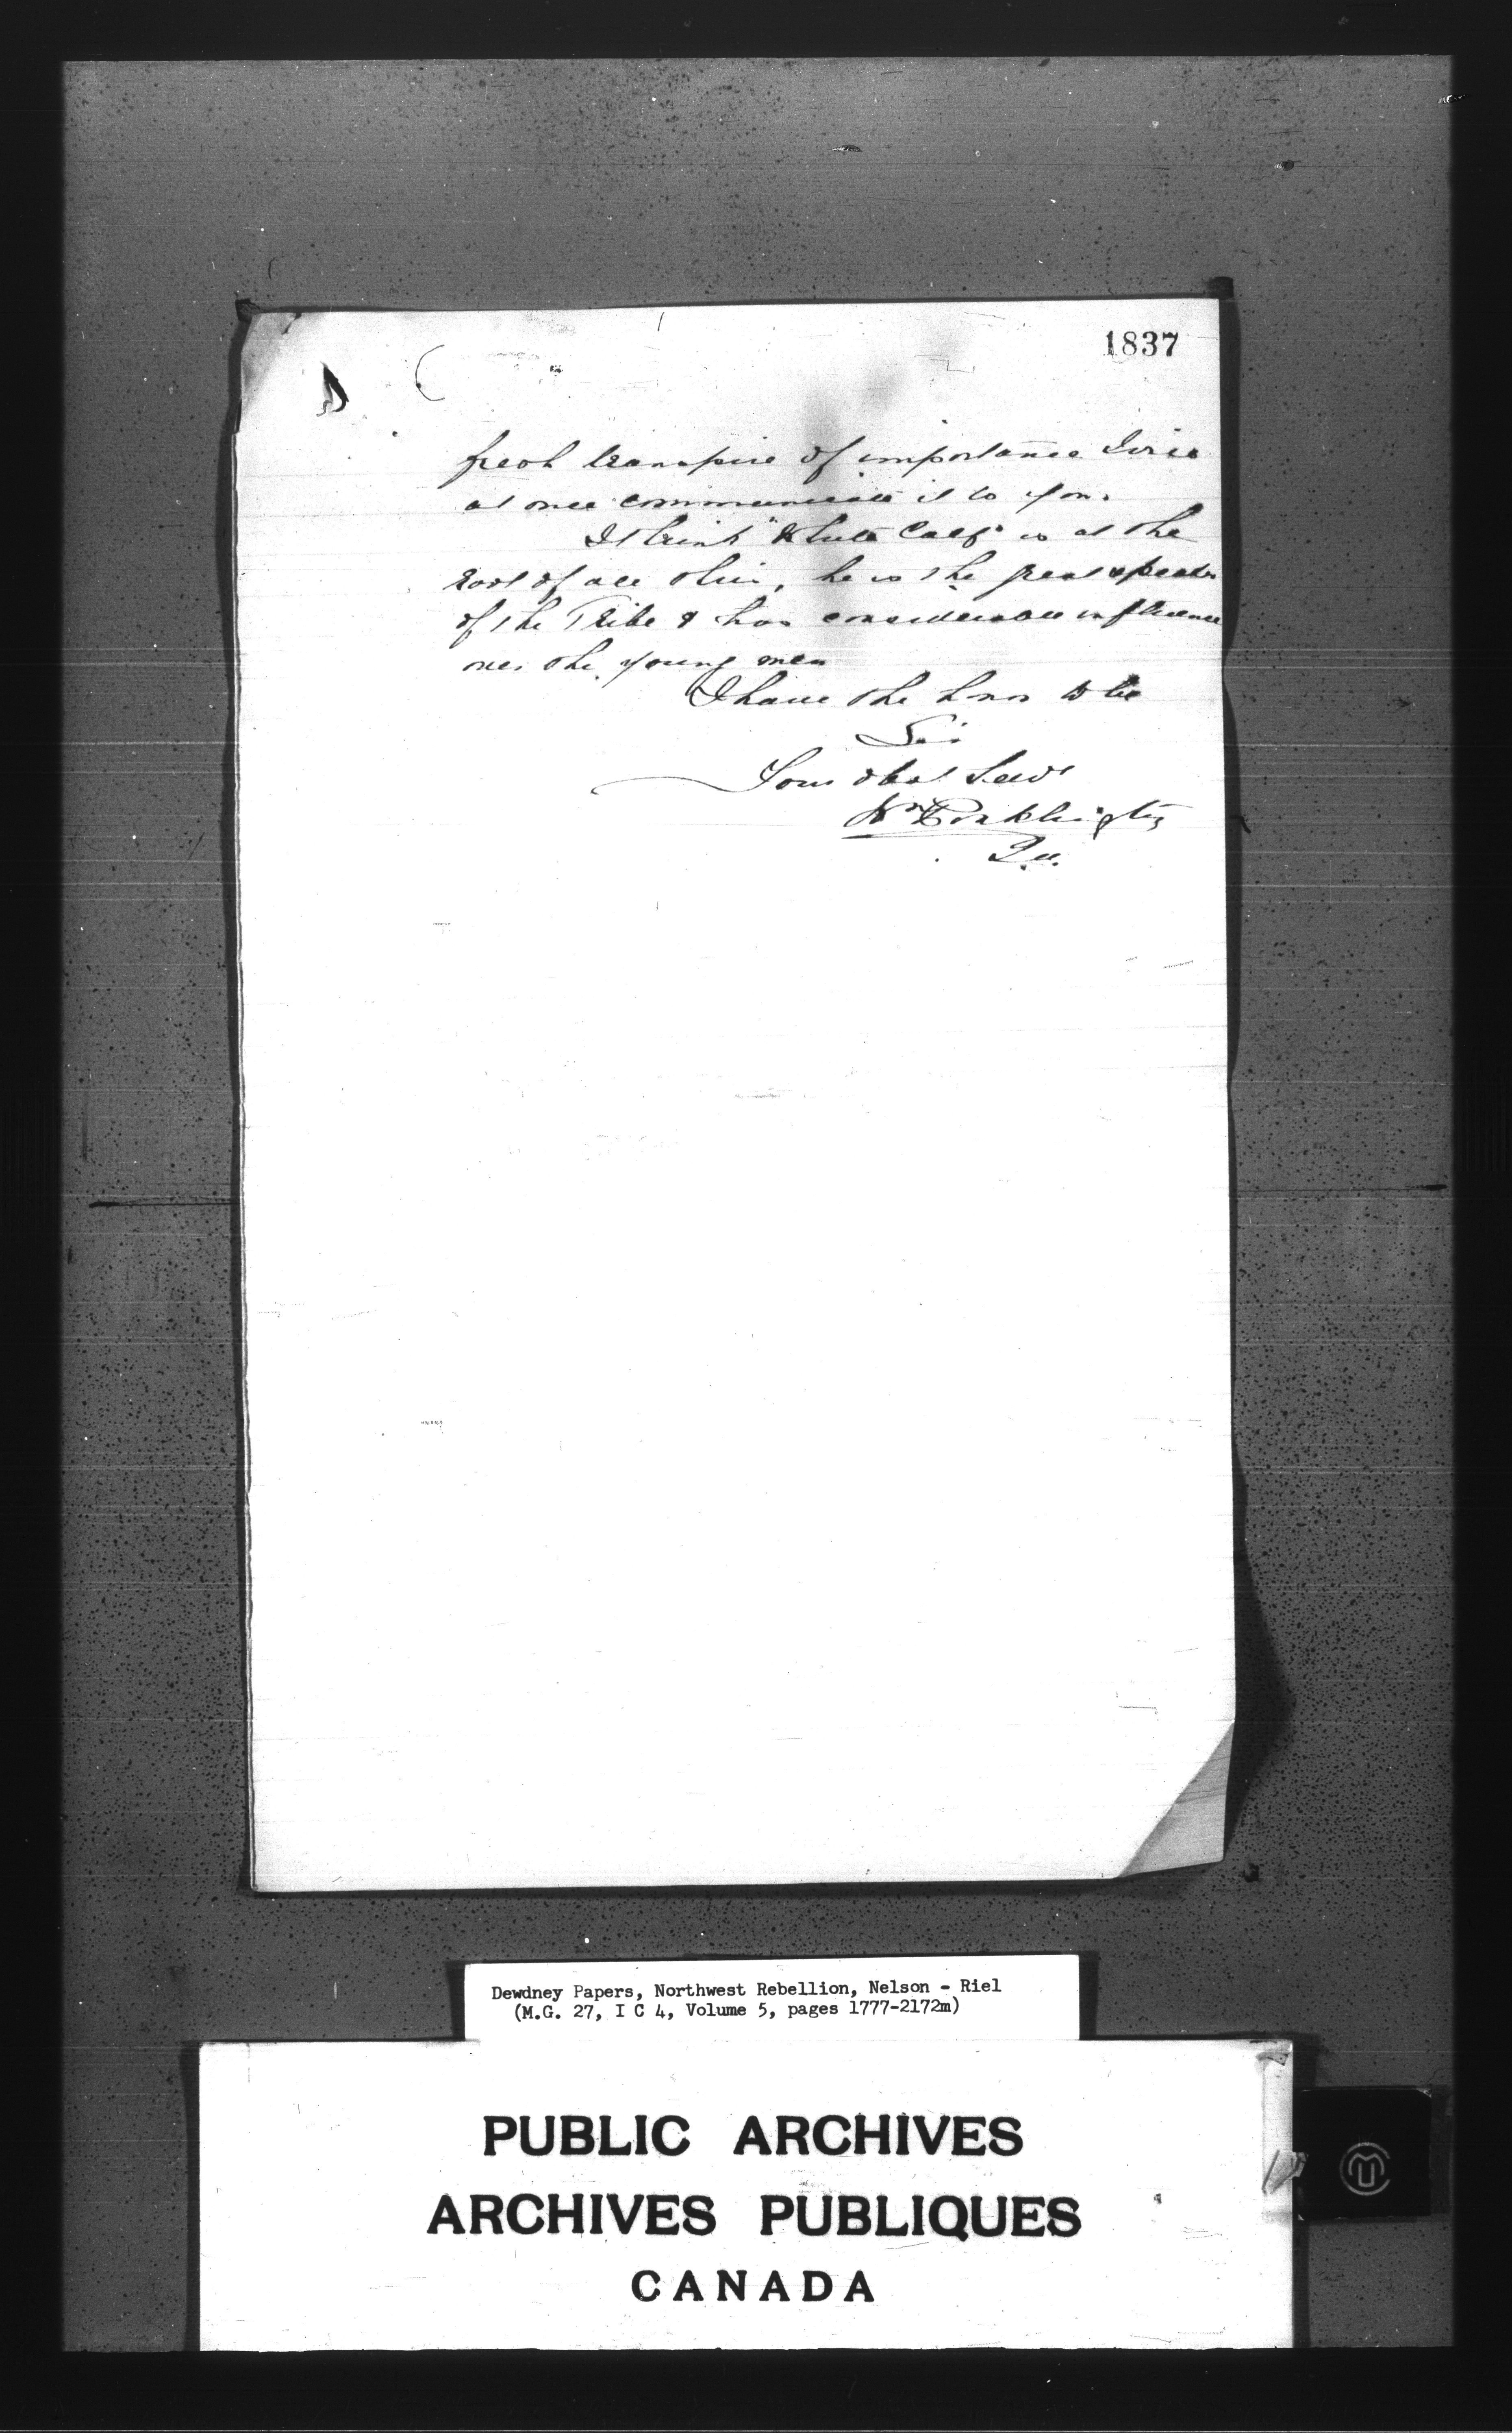 1837
fresh transpire of importance I will
at once communicate it to you.
I think "White Calf" is at the
root of all this, he is the great speaker
of the Tribe & has considerable influence
over the young men
I have the honor to be
Sir
Your obet Servt
Wm Pocklington
Dewdney Papers, Northwest Rebellion, Nelson - Riel
(M.G. 27, I C 4, Volume 5, pages 1777-2172m)
PUBLIC ARCHIVES
ARCHIVES PUBLIQUES
CANADA